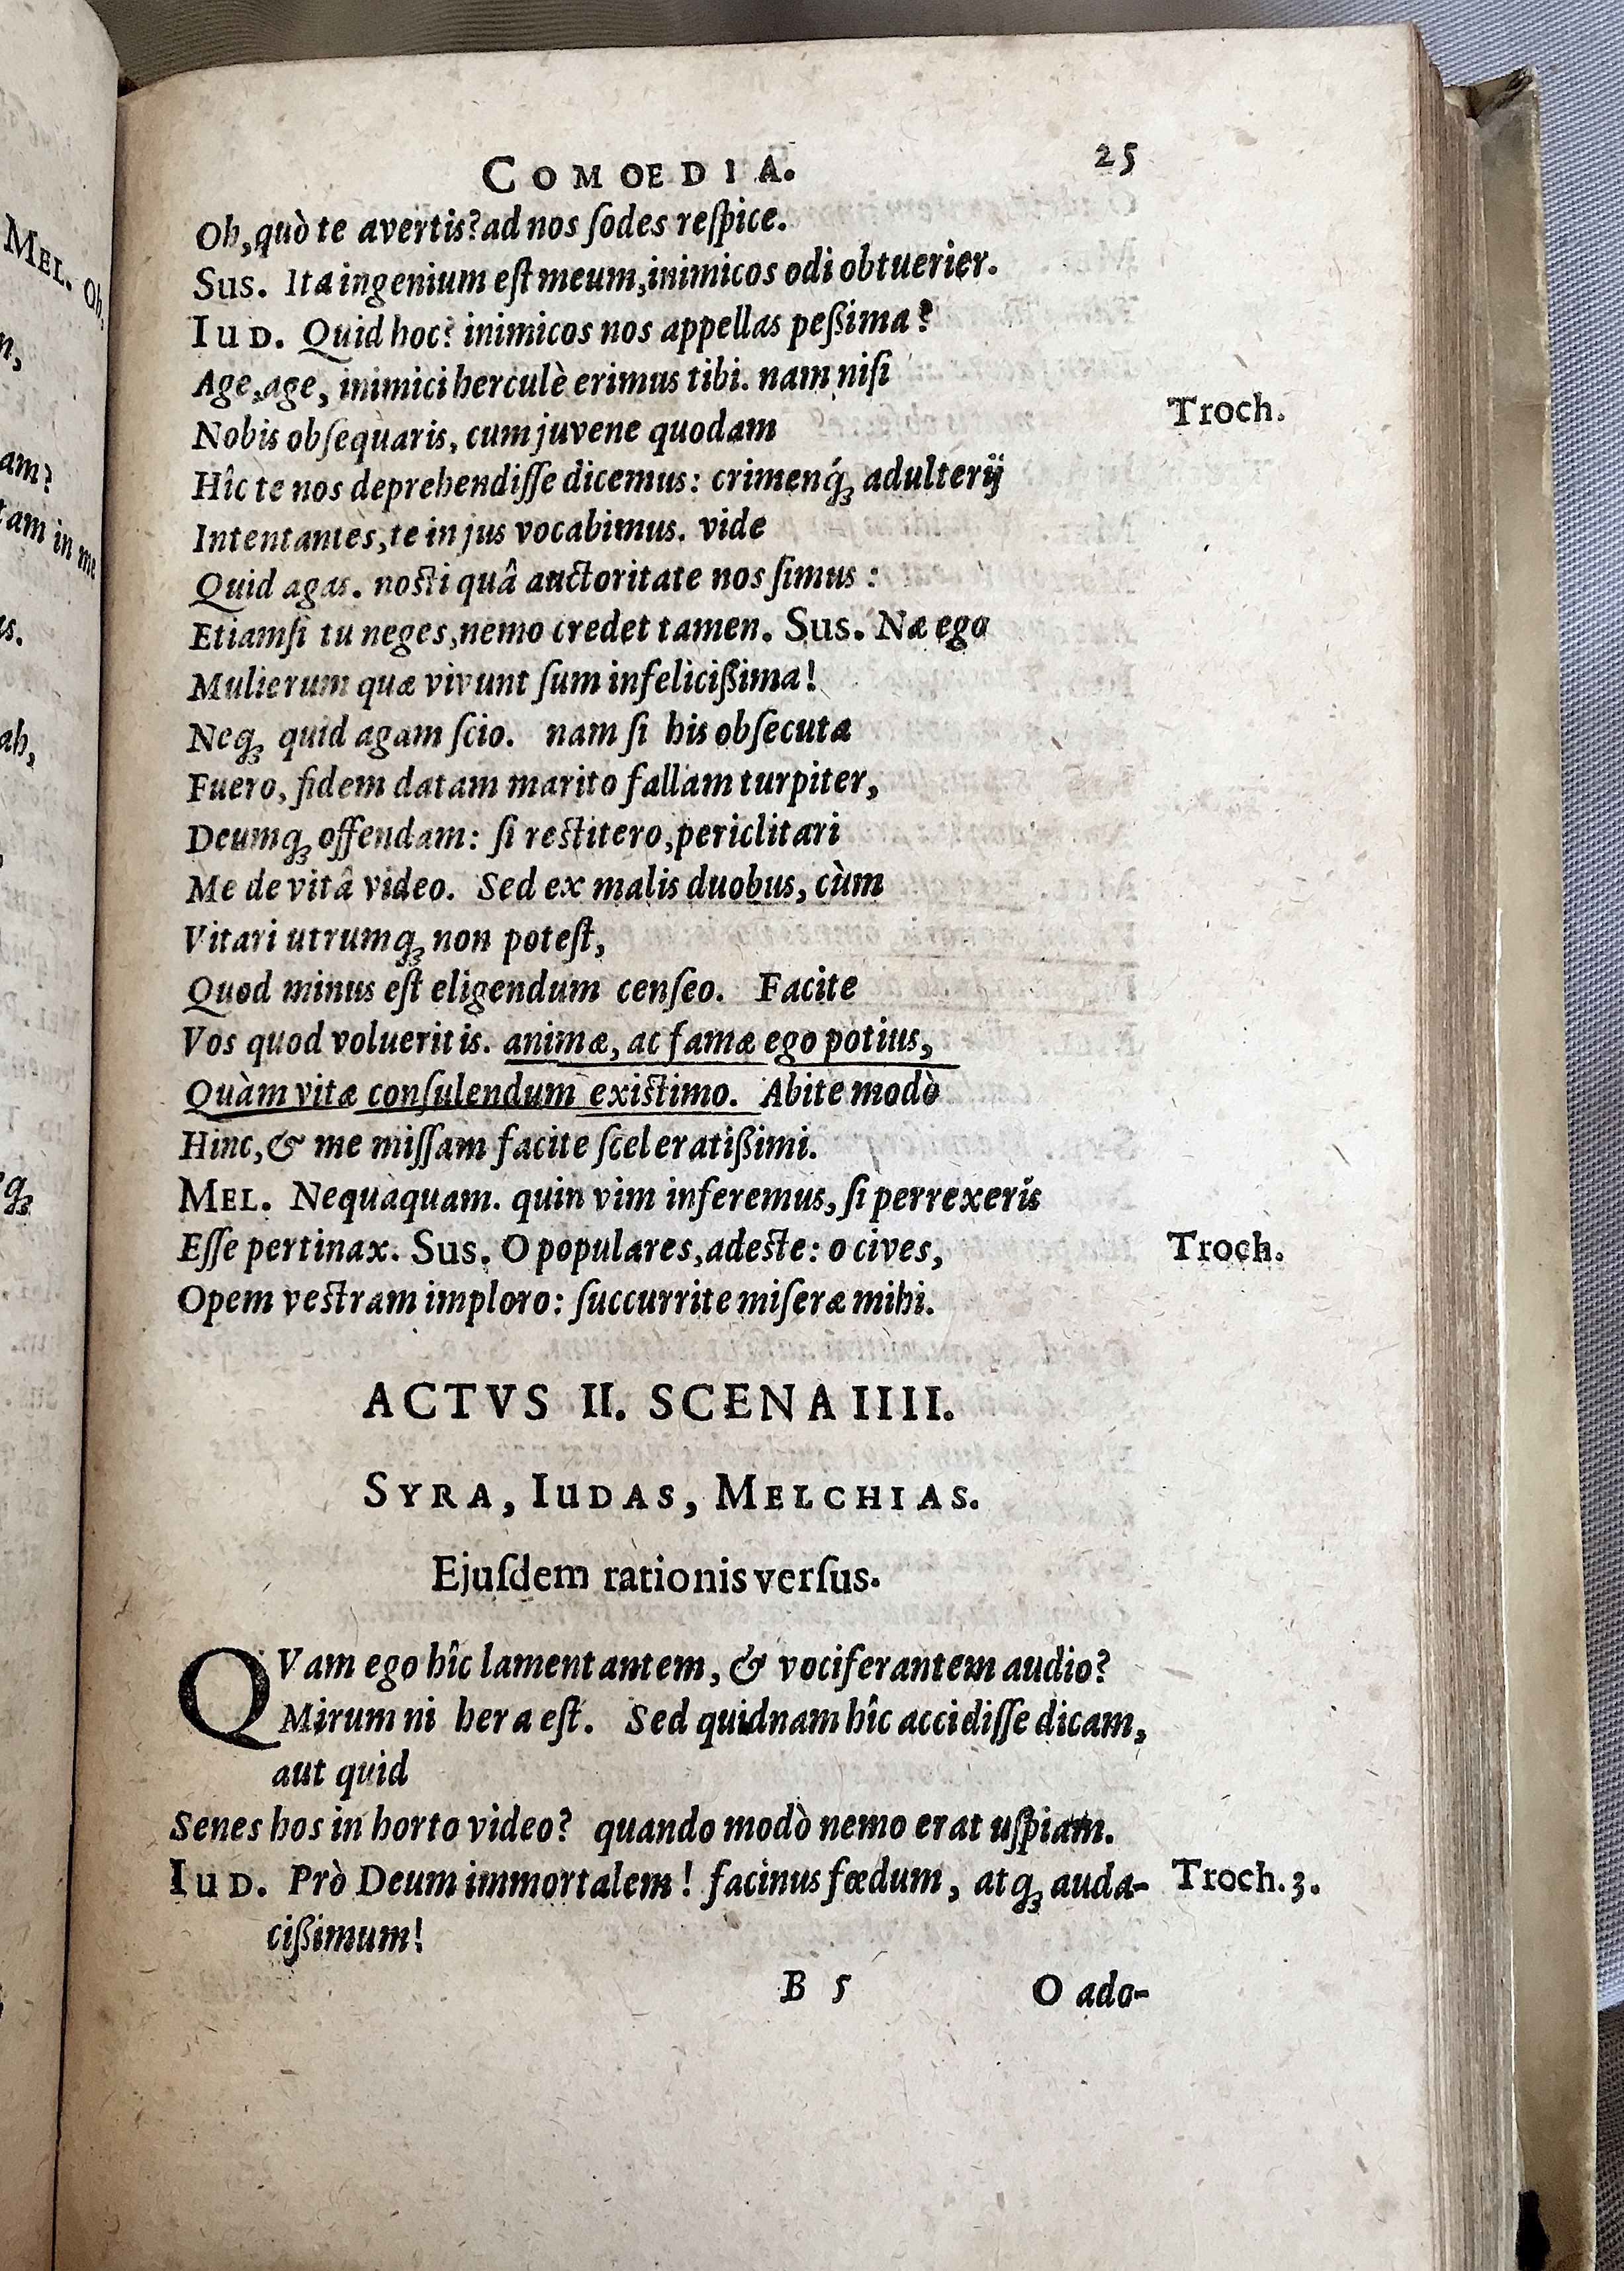 COMOEDIA. 25
Oh, quò te avertis? ad nos ſodes reſpice.
Sus. Ita ingenium eſt meum, inimicos odi obtuerier.
Iud. Quid hoc? inimicos nos appellas peßima?
Age, age, inimici herculè erimus tibi. nam niſi
Nobis obſequaris, cum juvene quodam Troch.
Hîc te nos deprehendiſſe dicemus: crimenq́ꝫ adulterij
Intentantes, te in jus vocabimus. vide
Quid agas. noſti quâ auctoritate nos ſimus:
Etiamſi tu neges, nemo credet tamen. Sus. Næ ego
Mulierum quæ vivunt ſum infelicißima!
Neqꝫ quid agam ſcio. nam ſi his obſecuta
Fuero, fidem datam marito fallam turpiter,
Deumqꝫ offendam: ſi reſtitero, periclitari
Me de vitâ video. Sed ex malis duobus, cùm
Vitari utrumqꝫ non poteſt,
Quod minus eſt eligendum cenſeo. Facite
Vos quod volueritis. animæ, ac famæ ego potius,
Quàm vitæ conſulendum exiſtimo. Abite modò
Hinc, & me miſſam facite ſceleratißimi.
Mel. Nequaquam. quin vim inferemus, ſi perrexeris
Eſſe pertinax. Sus. O populares, adeſte: o cives, Troch.
Opem veſtram imploro: ſuccurrite miſeræ mihi.
ACTVS II. SCENA IIII.
SYRA, IUDAS, MELCHIAS.
Ejuſdem rationis verſus.
QVam ego hîc lamentantem, & vociferantem audio?
Mirum ni hera eſt. Sed quidnam hîc accidiſſe dicam,
aut quid
Senes hos in horto video? quando modò nemo erat uſpiam.
Iud. Prò Deum immortalem! facinus fœdum, atqꝫ auda- Troch. 3.
cißimum!
B 5 O ado-
MEL. Oh,
am?
tam in me
ah,